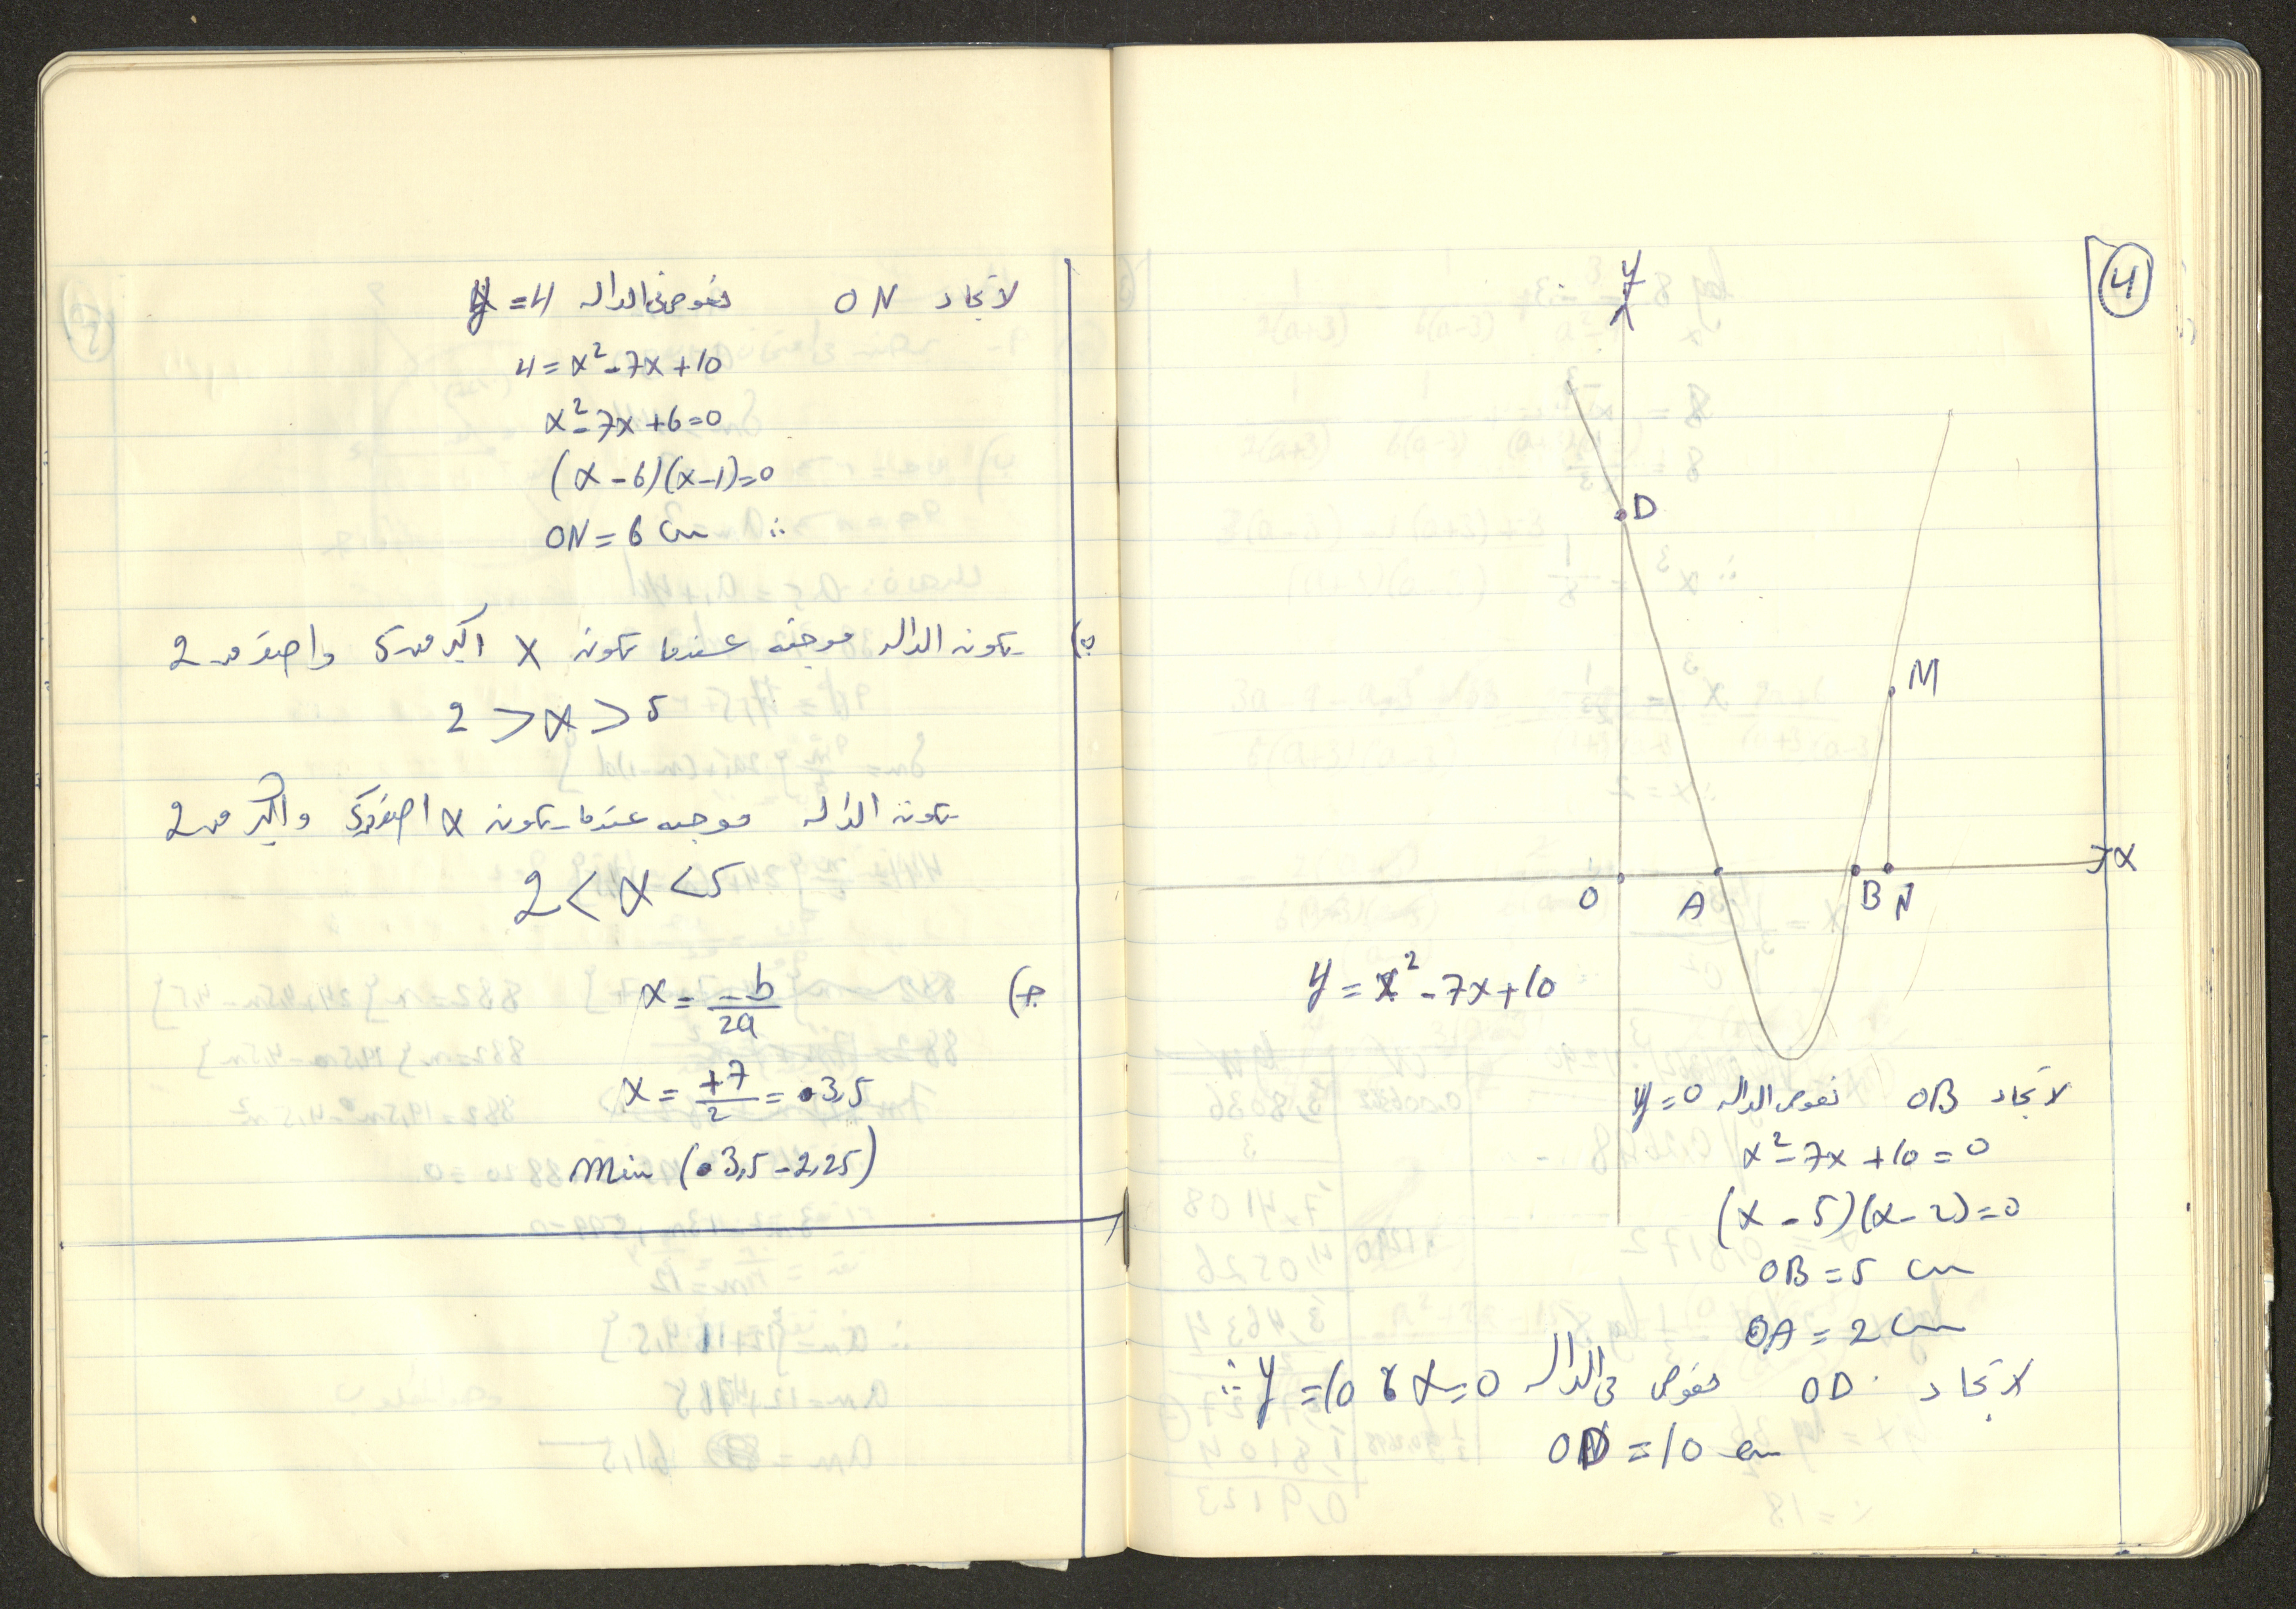 4
y
D
M
x
O A B N
y = x² - 7x + 10
لايجاد OB نعوض الداله y = 0
x² - 7x + 10 = 0
(x - 5)(x - 2) = 0
OB = 5 cm
OA = 2 cm
لايجاد OD نعوض في الداله x = 0 ∴ y = 10
OD = 10 cm
لايجاد ON نعوض في الداله y = 4
4 = x² - 7x + 10
x² - 7x + 6 = 0
(x - 6)(x - 1) = 0
∴ ON = 6 cm
ب) تكون الداله موجبه عندما تكون x اكبر من 5 واصغر من 2
2 > x > 5
تكون الداله موجبه عندما تكون x اصغر من 5 واكبر من 2
2 < x < 5
ج) x = -b/2a
x = +7/2 = 3,5
Min (3,5 - 2,25)